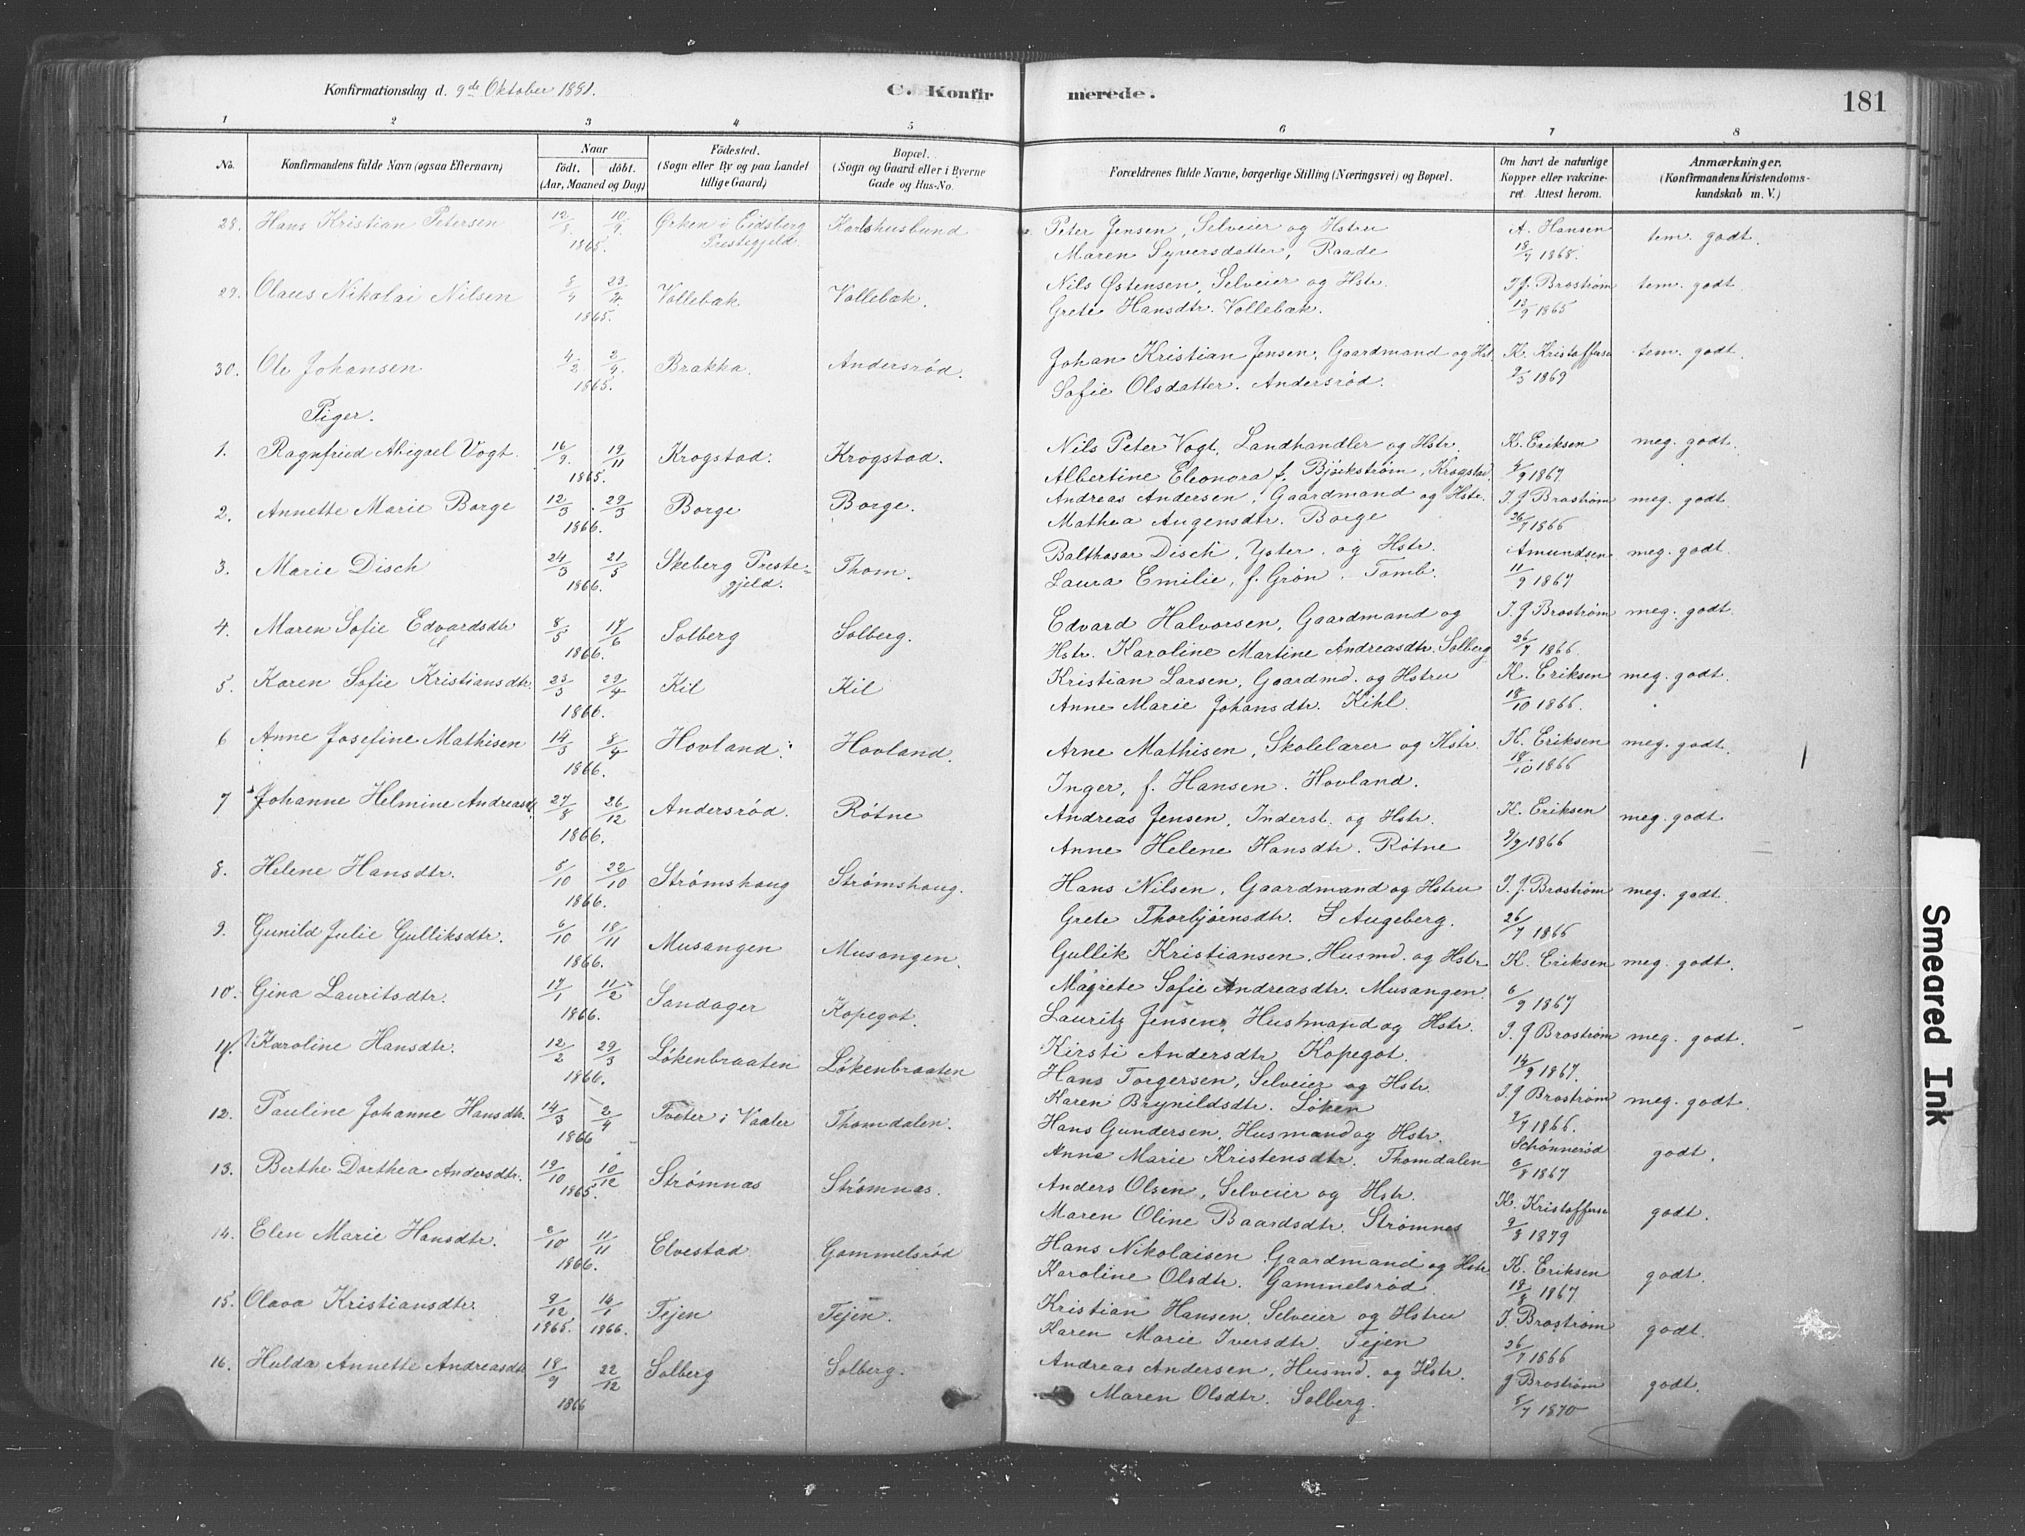 Konfirmationsdag d. 9de Oktober 1881. C. Konfir merede. 181
1 2 3 4 5 6 7 8
No. Konfirmandens fulde Navn (ogsaa Efternavn) Naar födt. döbt. (Aar, Maaned og Dag) Födested. (Sogn eller By og paa Landet tillige Gaard) Bopæl. (Sogn og Gaard eller i Byerne Gade og Hus-No. Forældrenes fulde Navne, borgerlige Stilling (Næringsvei) og Bopæl. Om havt de naturlige Kopper eller vakcineret. Attest herom. Anmærkninger. (Konfirmandens Kristendomskundskab m. V.)
28. Hans Kristian Petersen 12/8 10/9 1865. Ørken i Eidsberg Prestegjeld. Karlshusbund Peter Jensen, Selveier og Hstru A. Hansen tem. godt.
Maren Syversdatter, Raade 18/7 1868.
29. Olaus Nikolai Nilsen 8/4 23/4 1865. Vollebæk Vollebæk. Nils Østensen, Selveier og Hstr. I. J. Brostrøm tem. godt.
Grete Hansdtr. Vollebæk. 13/9 1865
30. Ole Johansen 4/2 2/4 1865. Brakka. Andersrød. Johan Kristian Jensen, Gaardmand og Hst. K. Kristoffersen tem. godt.
Sofie Olsdatter. Andersrød. 9/5 1869
Piger.
1. Ragnfried Abigael Vogt. 16/9 19/11 1865. Krogstad. Krogstad. Nils Peter Vogt, Landhandler og Hstr. K. Eriksen meg. godt.
Albertine Eleonora f. Bjørkstrøm, Krogstad 4/9 1867.
2. Annette Marie Borge 12/3 29/3 1866. Borge Borge. Andreas Andersen, Gaardmand og Hstr. I. J Brostrøm meg. godt.
Mathea Augensdtr. Borge 26/7 1866
3. Marie Disch 24/3 21/5 1866. Skeberg Prestegjeld. Thom. Balthasar Disch, Yster. og Hstr. Amundsen meg. godt.
Laura Emilie, f. Grøn. Tomb. 11/9 1867
4. Maren Sofie Edvardsdtr 8/5 17/6 1866. Solberg Solberg. Edvard Halvorsen, Gaardmand og I. J Brostrøm meg. godt.
Hstr. Karoline Martine Andreasdtr. Solberg 26/7 1866.
5. Karen Sofie Kristiansdtr. 23/3 29/4 1866. Kil Kil Kristian Larsen, Gaardmd. og Hstru K. Eriksen meg. godt.
Anne Marie Johansdtr. Kihl. 18/10 1866.
6 Anne Josefine Mathisen 14/3 8/4 1866. Hovland. Hovland. Arne Mathisen, Skolelærer og Hstr. K. Eriksen meg. godt.
Inger, f. Hansen. Hovland. 18/10 1866
7 Johanne Helmine Andreasd. 27/8 26/12 1866. Andersrød. Røtne Andreas Jensen, Inderst. og Hstr. K. Eriksen meg. godt
Anne Helene Hansdtr. Røtne 9/9 1866
8. Helene Hansdtr. 8/10 22/10 1866. Strømshaug Strømshaug. Hans Nilsen, Gaardmand og Hstru I. J. Brostrøm meg. godt.
Grete Thorbjørnsdtr. S Augeberg. 26/7 1866
9. Gunild Julie Gulliksdtr. 6/10 18/11 1866. Musangen Musangen. Gullik Kristiansen. Husmd. og Hstr K. Eriksen meg. godt.
Magrete Sofie Andreasdtr. Musangen. 6/9 1867
10. Gina Lauritsdtr. 17/1 11/2 1866. Sandager Kopegot. Lauritz Jensen, Husmand og Hstr. I. J Brostrøm meg. godt.
Kirsti Andersdtr. Kopegot. 14/9 1867.
11. Karoline Hansdtr. 12/2 29/3 1866. Løkenbraaten Løkenbraaten Hans Torgersen, Selveier og Hstr. I. J Brostrøm meg. godt.
Karen Brynildsdtr. Løken 1866.
12. Pauline Johanne Hansdtr. 14/3 2/4 1866 Tveter i Vaaler Thomdalen. Hans Gundersen, Husmand og Hstr. Schønnerød godt.
Anna Marie Kristensdtr. Thomdalen 6/8 1867
13. Berthe Dorthea Andersdtr. 19/10 10/12 1865. Strømnæs Strømnæs. Anders Olsen, Selveier og Hstr. K. Kristoffersen godt.
Maren Oline Baardsdtr. Strømnes 9/8 1879
14. Elen Marie Hansdtr. 6/10 11/11 1866. Elvestad Gammelsrød Hans Nikolaisen Gaardmand og Hstr K. Eriksen godt.
Karoline Olsdtr. Gammelsrød. 19/8 1867
15. Olava Kristiansdtr. 9/12 1865. 14/1 1866. Tejen Tejen. Kristian Hansen, Selveier og Hstru I. Brostrøm godt.
Karen Marie Iversdtr. Tejen 26/7 1866
16. Hulda Annette Andreasdtr 18/9 22/12 1866 Solberg Solberg. Andreas Andersen, Husmd. og Hstr. J Brostrøm godt.
Maren Olsdtr. Solberg. 5/7 1870
Smeared Ink